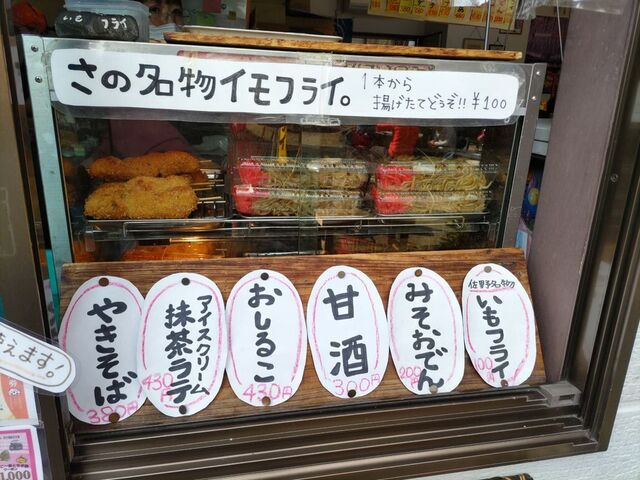 いもフライ
さの名物イモフライ。
1本から
揚げたてどうぞ!!¥100
やきそば
380円
アイスクリーム
抹茶ラテ
430円
おしるこ
430円
甘酒
300円
みそおでん
200円
佐野名物
いもフライ
100円
えます!
1,000